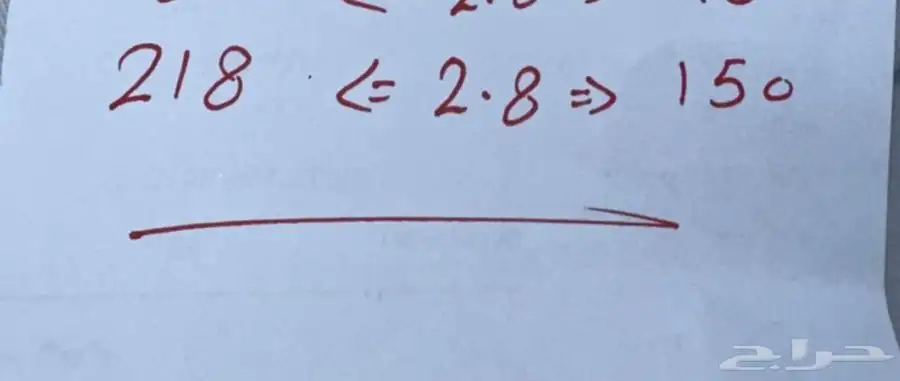 218 <= 2.8 => 150
حراج